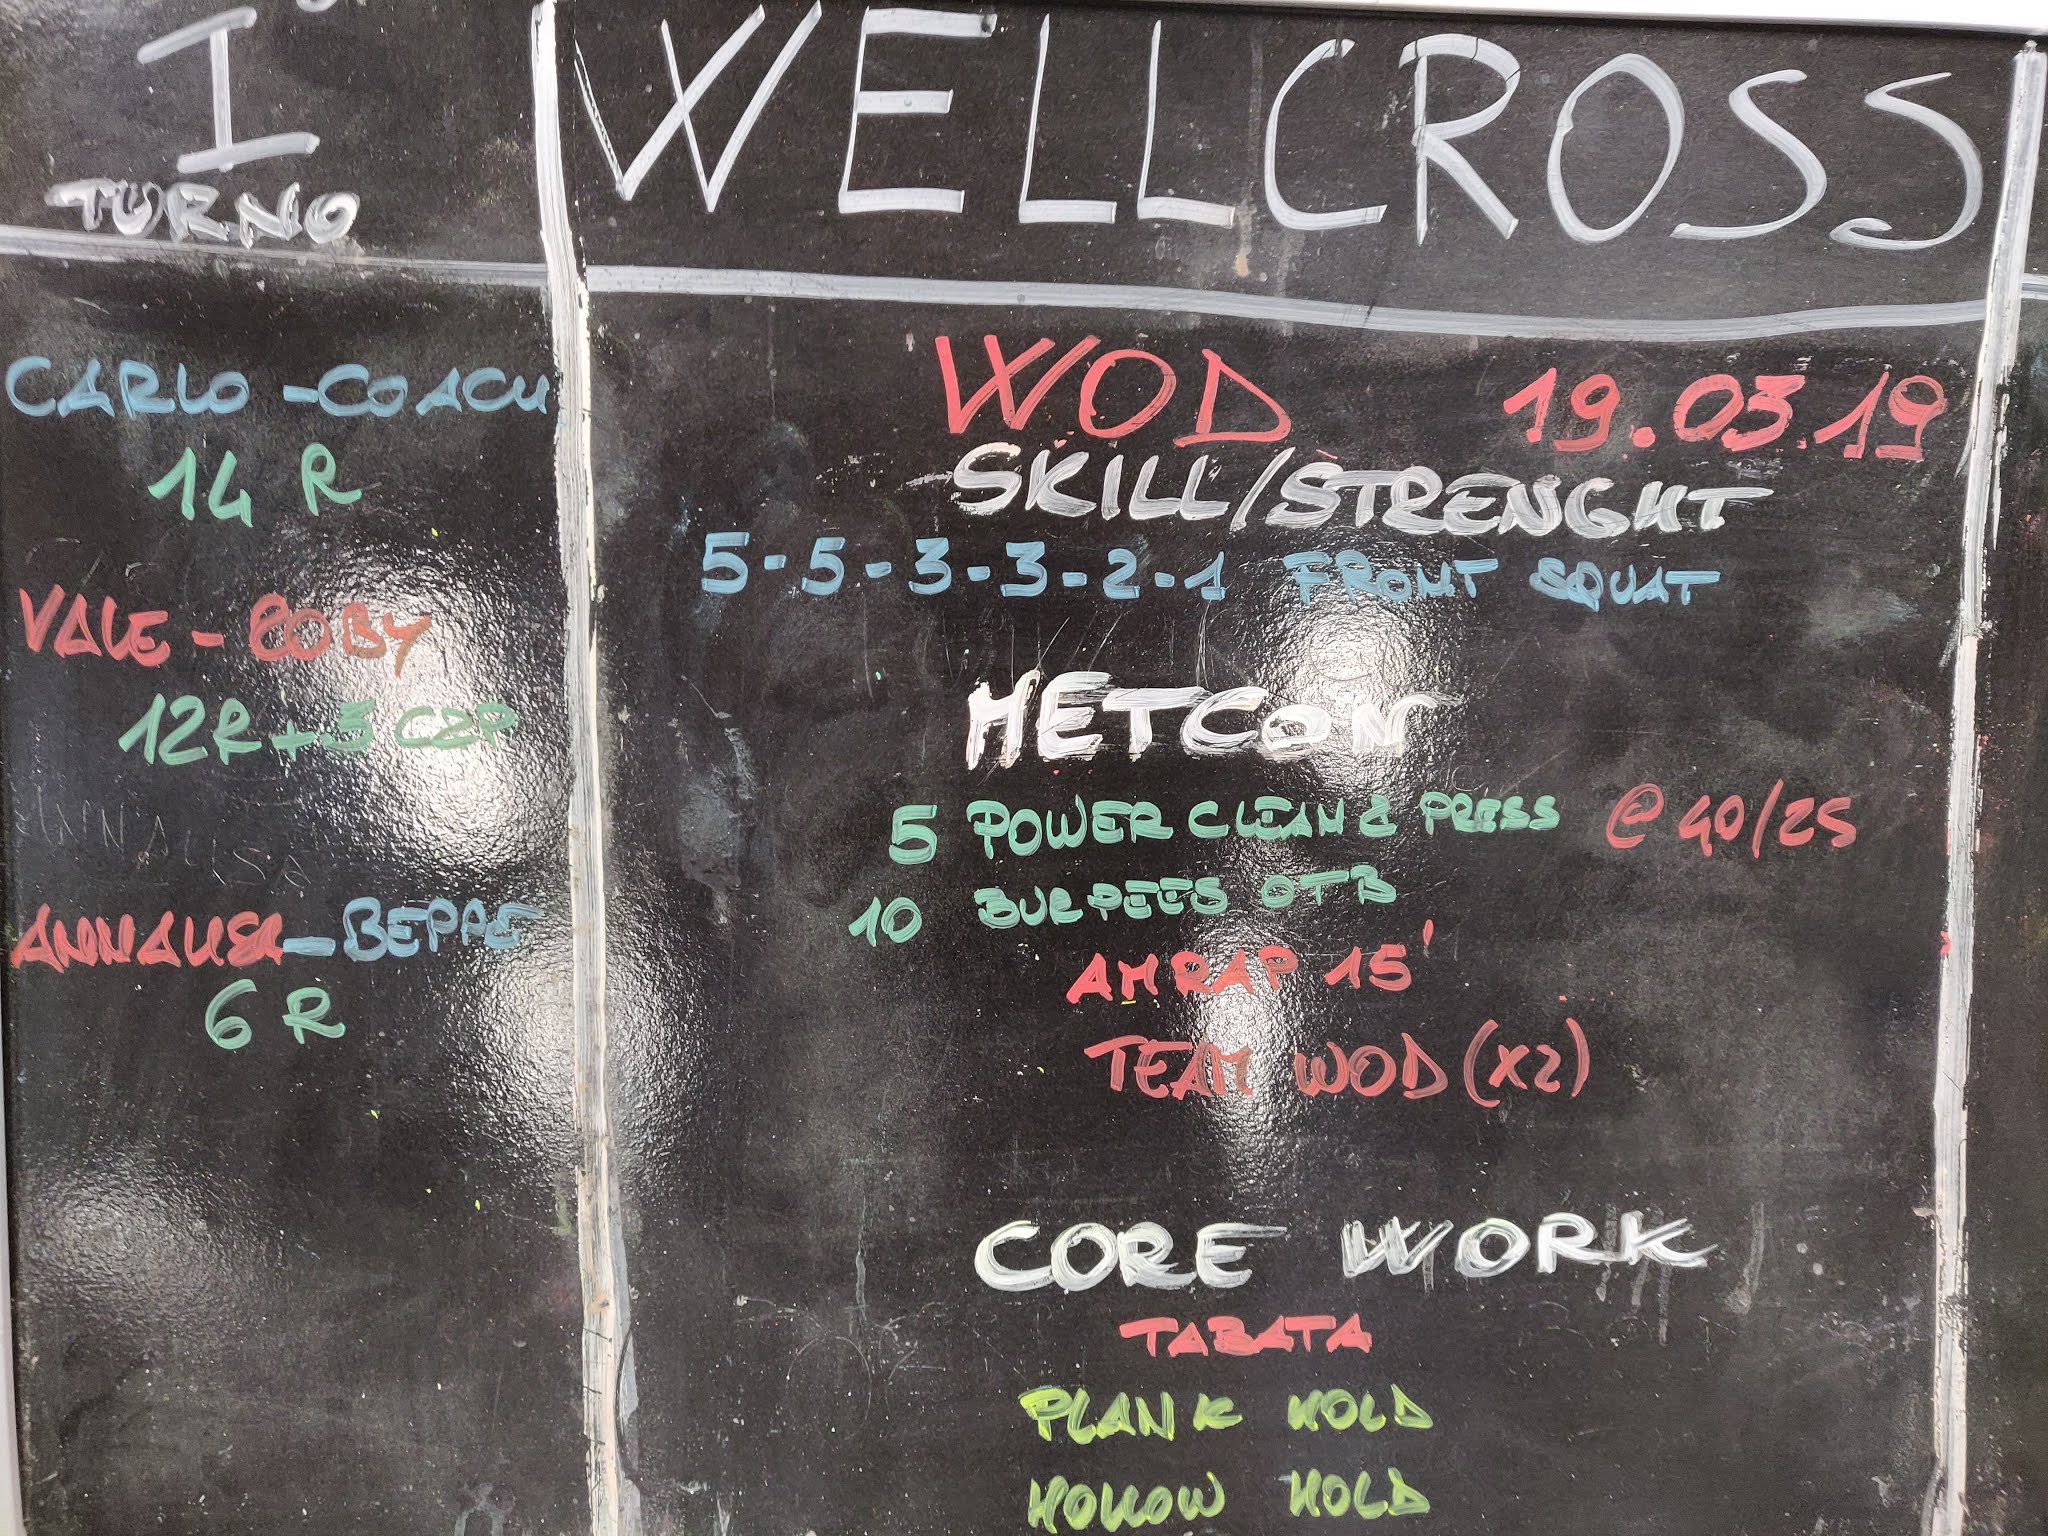 I°
TURNO
CARLO - COACH
14 R
VALE - ROBY
12R + 5 C2P
ANNALISA - BEPPE
6 R
WELLCROSS
WOD 19.03.19
SKILL/STRENGHT
5-5-3-3-2-1 FRONT SQUAT
METCON
5 POWER CLEAN & PRESS @ 40/25
10 BURPEES OTB
AMRAP 15'
TEAM WOD (X2)
CORE WORK
TABATA
PLANK HOLD
HOLLOW HOLD